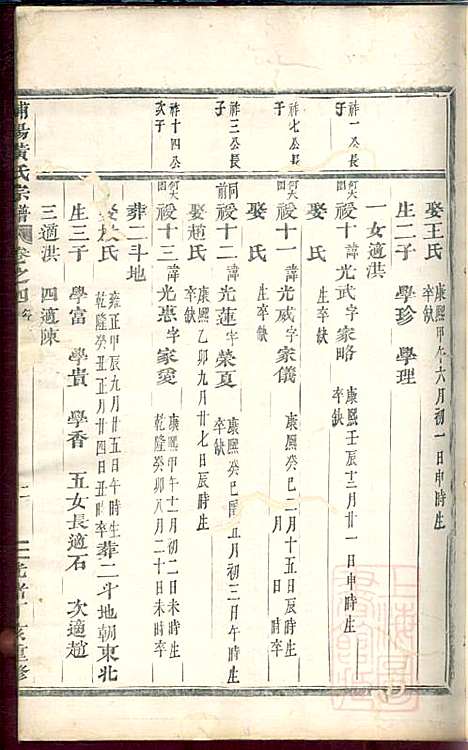 娶王氏 康熙甲午六月初一日申時生 卒缺
生二子 學珍 學理
一女適淇
祚一公長子
祾十 諱光武字家略 康熙壬辰十二月廿一日申時生 卒缺
娶 氏 生卒缺
祚七公長子
祾十一 諱光威字家儀 康熙癸巳二月十五日辰時生 卒缺 月 日
娶 氏 生卒缺
祚三公長子
同前 祾十二 諱光蓮字榮夏 康熙癸巳閏五月初三日午時生 卒缺
娶趙氏 康熙乙卯九月廿七日辰時生 卒缺
祚十四公次子
祾十三 諱光惠字家愛 康熙甲午十二月初二日未時生 乾隆癸卯八月二十日未時卒
葬二斗地
氏 雍正甲辰九月廿五日午時生 乾隆癸丑正月廿四日丑時卒 葬二斗地朝東北
生三子 學富 學貴 學香 五女長適石 次適趙
三適淇 四適陳
浦陽黃氏宗譜 卷之四 二 重修